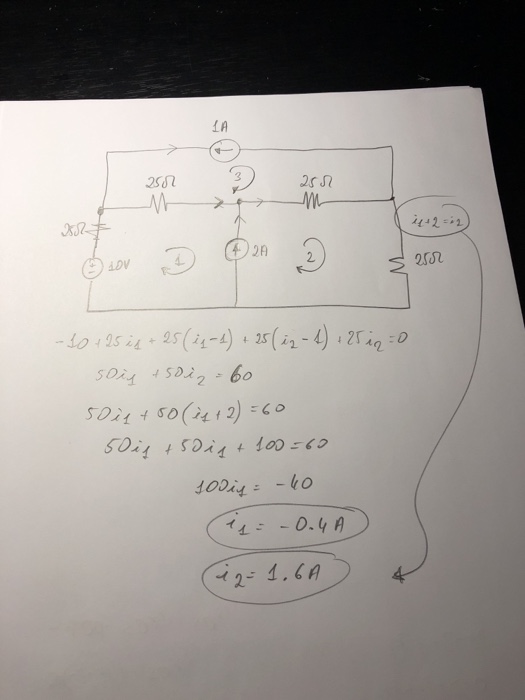 1A
25Ω
3
25Ω
25Ω
10V
1
2A
2
i₁+2=i₂
25Ω
-10+25i₁+25(i₁-1)+25(i₂-1)+25i₂=0
50i₁+50i₂=60
50i₁+50(i₁+2)=60
50i₁+50i₁+100=60
100i₁=-40
i₁=-0.4A
i₂=1.6A